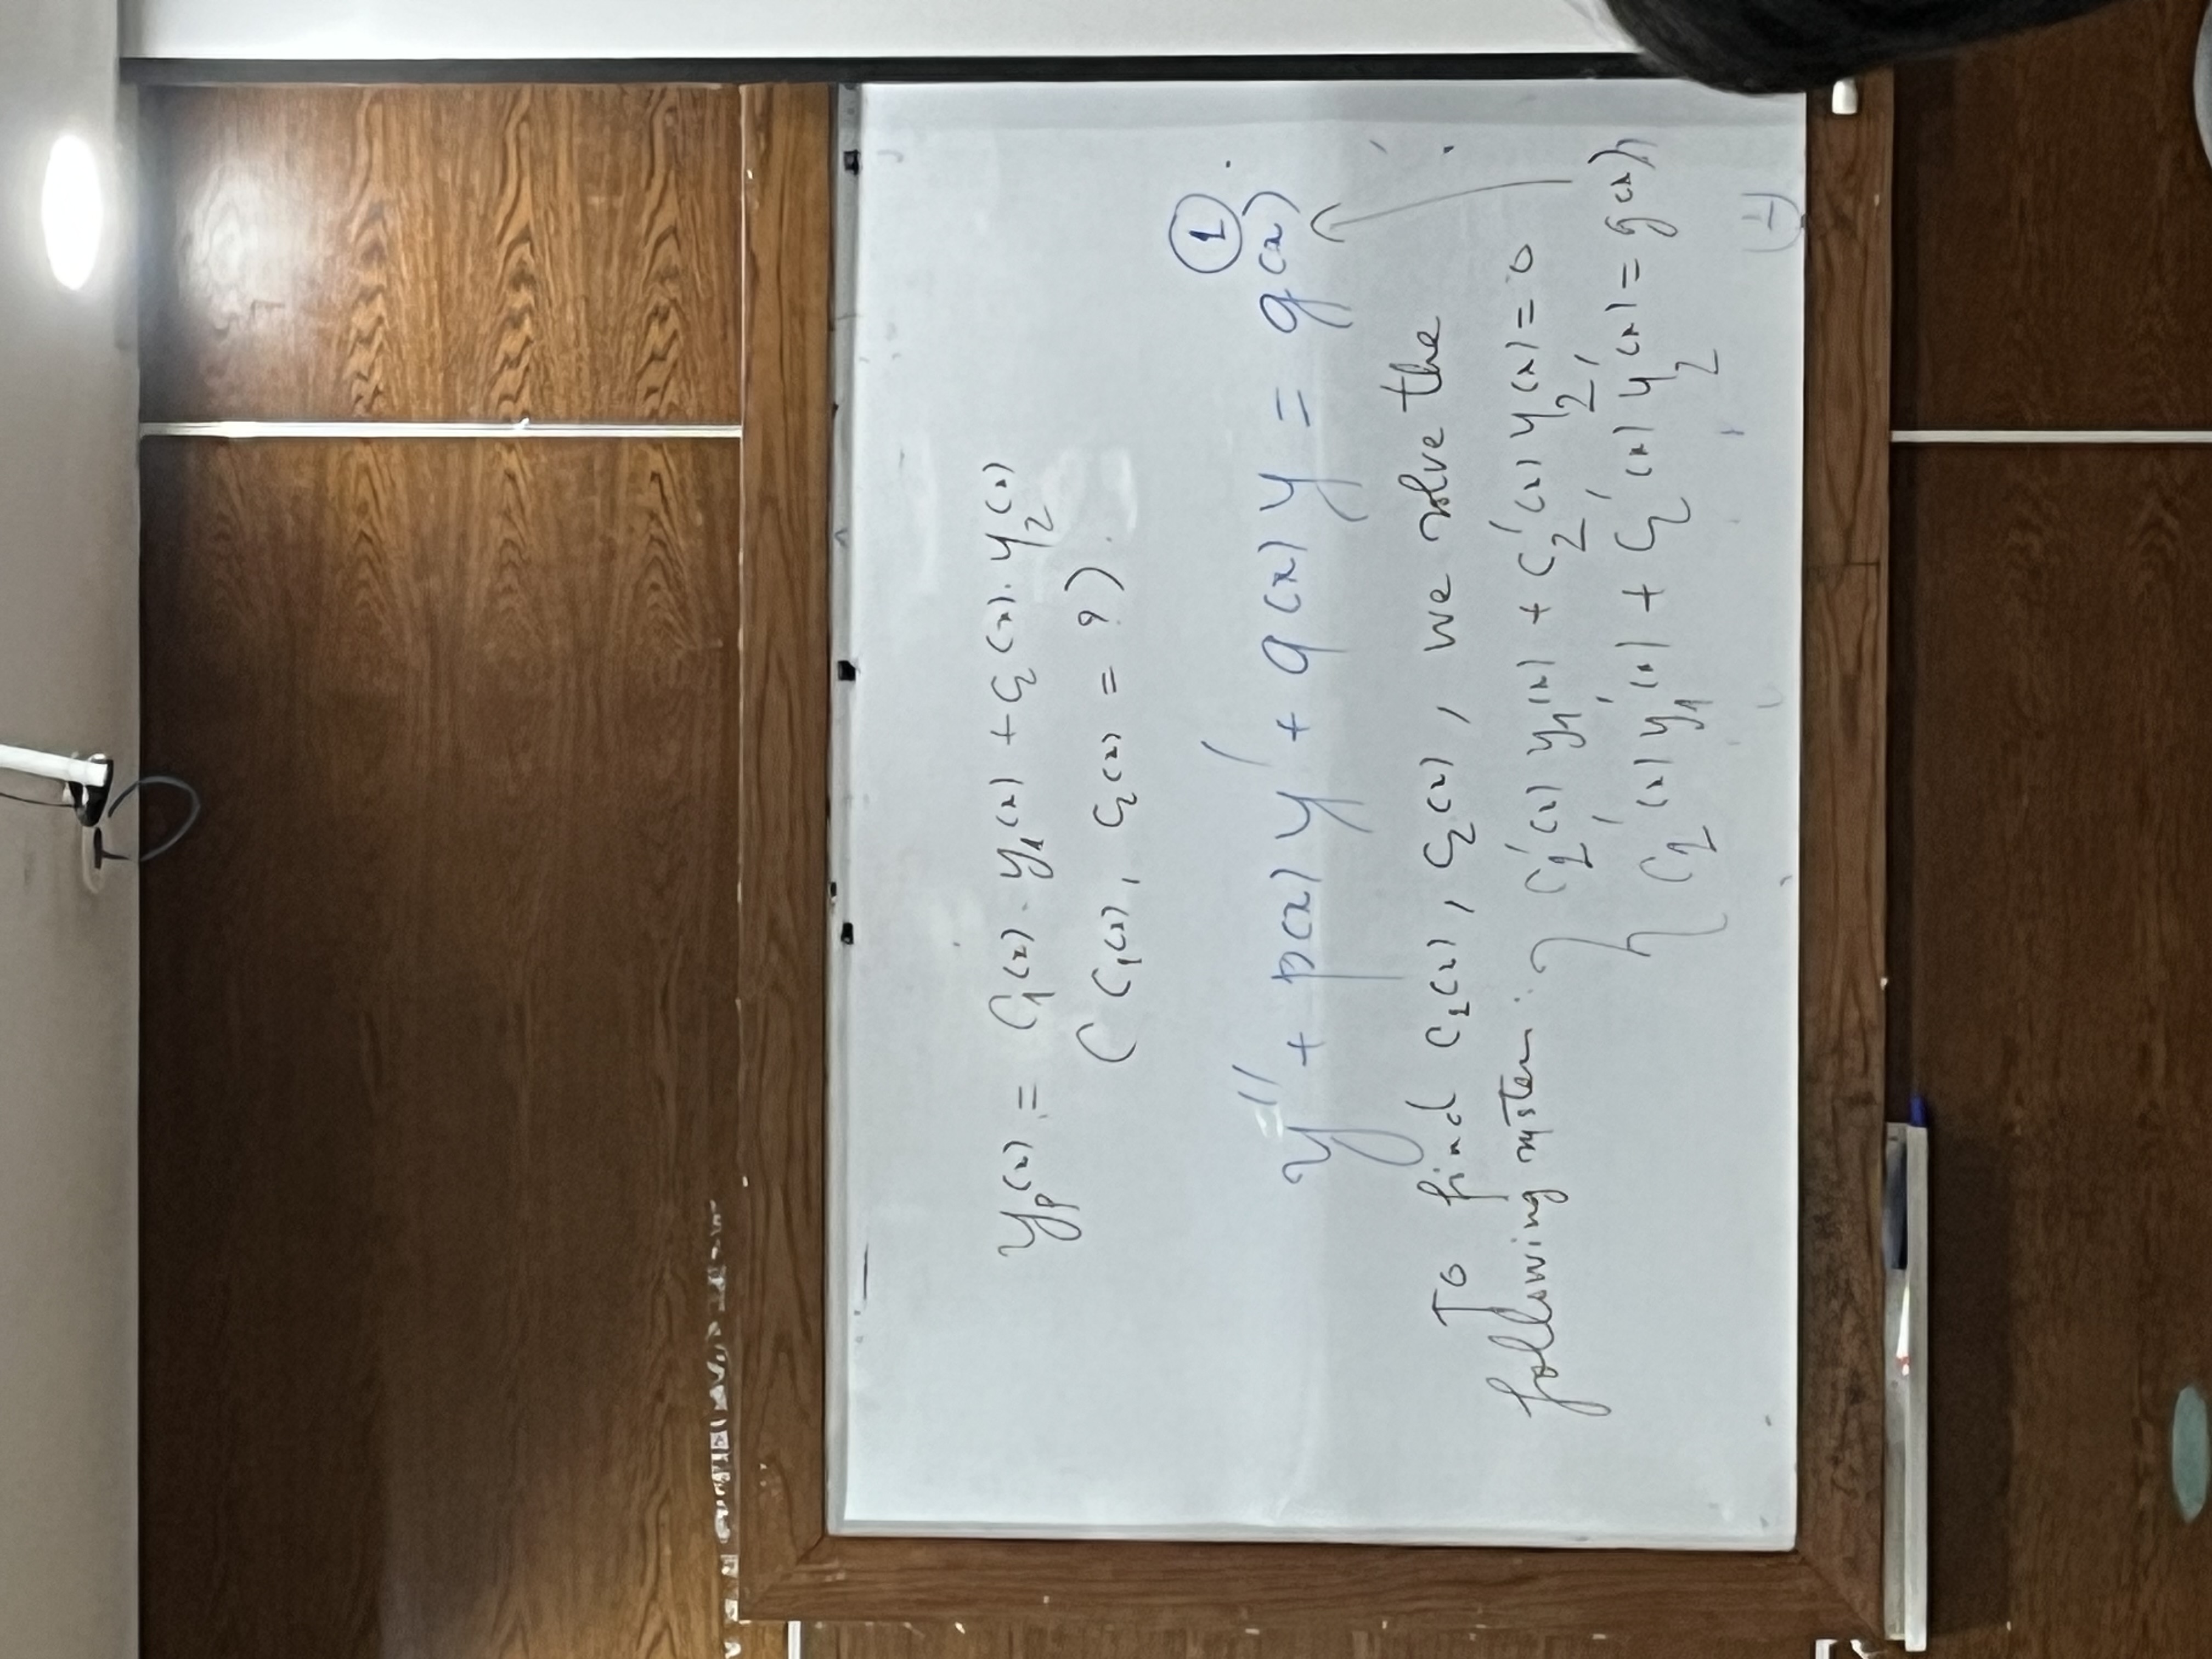 yₚ(x) = C₁(x) . y₁(x) + C₂(x) . y₂(x)
( C₁(x), C₂(x) = ? )
①
y'' + p(x) y' + q(x) y = g(x)
To find C₁(x), C₂(x), we solve the
following system:
C₁'(x) y₁(x) + C₂'(x) y₂(x) = 0
C₁'(x) y₁'(x) + C₂'(x) y₂'(x) = g(x)